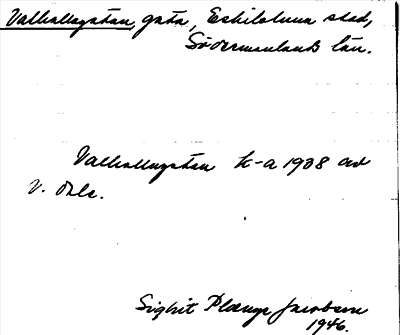 Valhallagatan, gata, Eskilstuna stad,
Södermanlands län.
Valhallagatan k-a 1908 av
V. Örls.
Sigbrit Plænge Jacobson
1946.